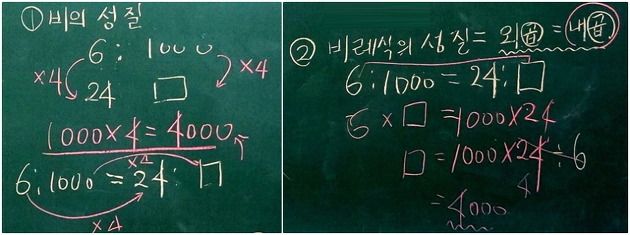 ① 비의 성질
6 : 1000
×4 ×4
24 □
1000×4=4000
×4
6:1000=24:□
×4
② 비례식의 성질= 외곱 = 내곱
6:1000=24:□
6×□=1000×24
□=1000×24÷6
4
=4000